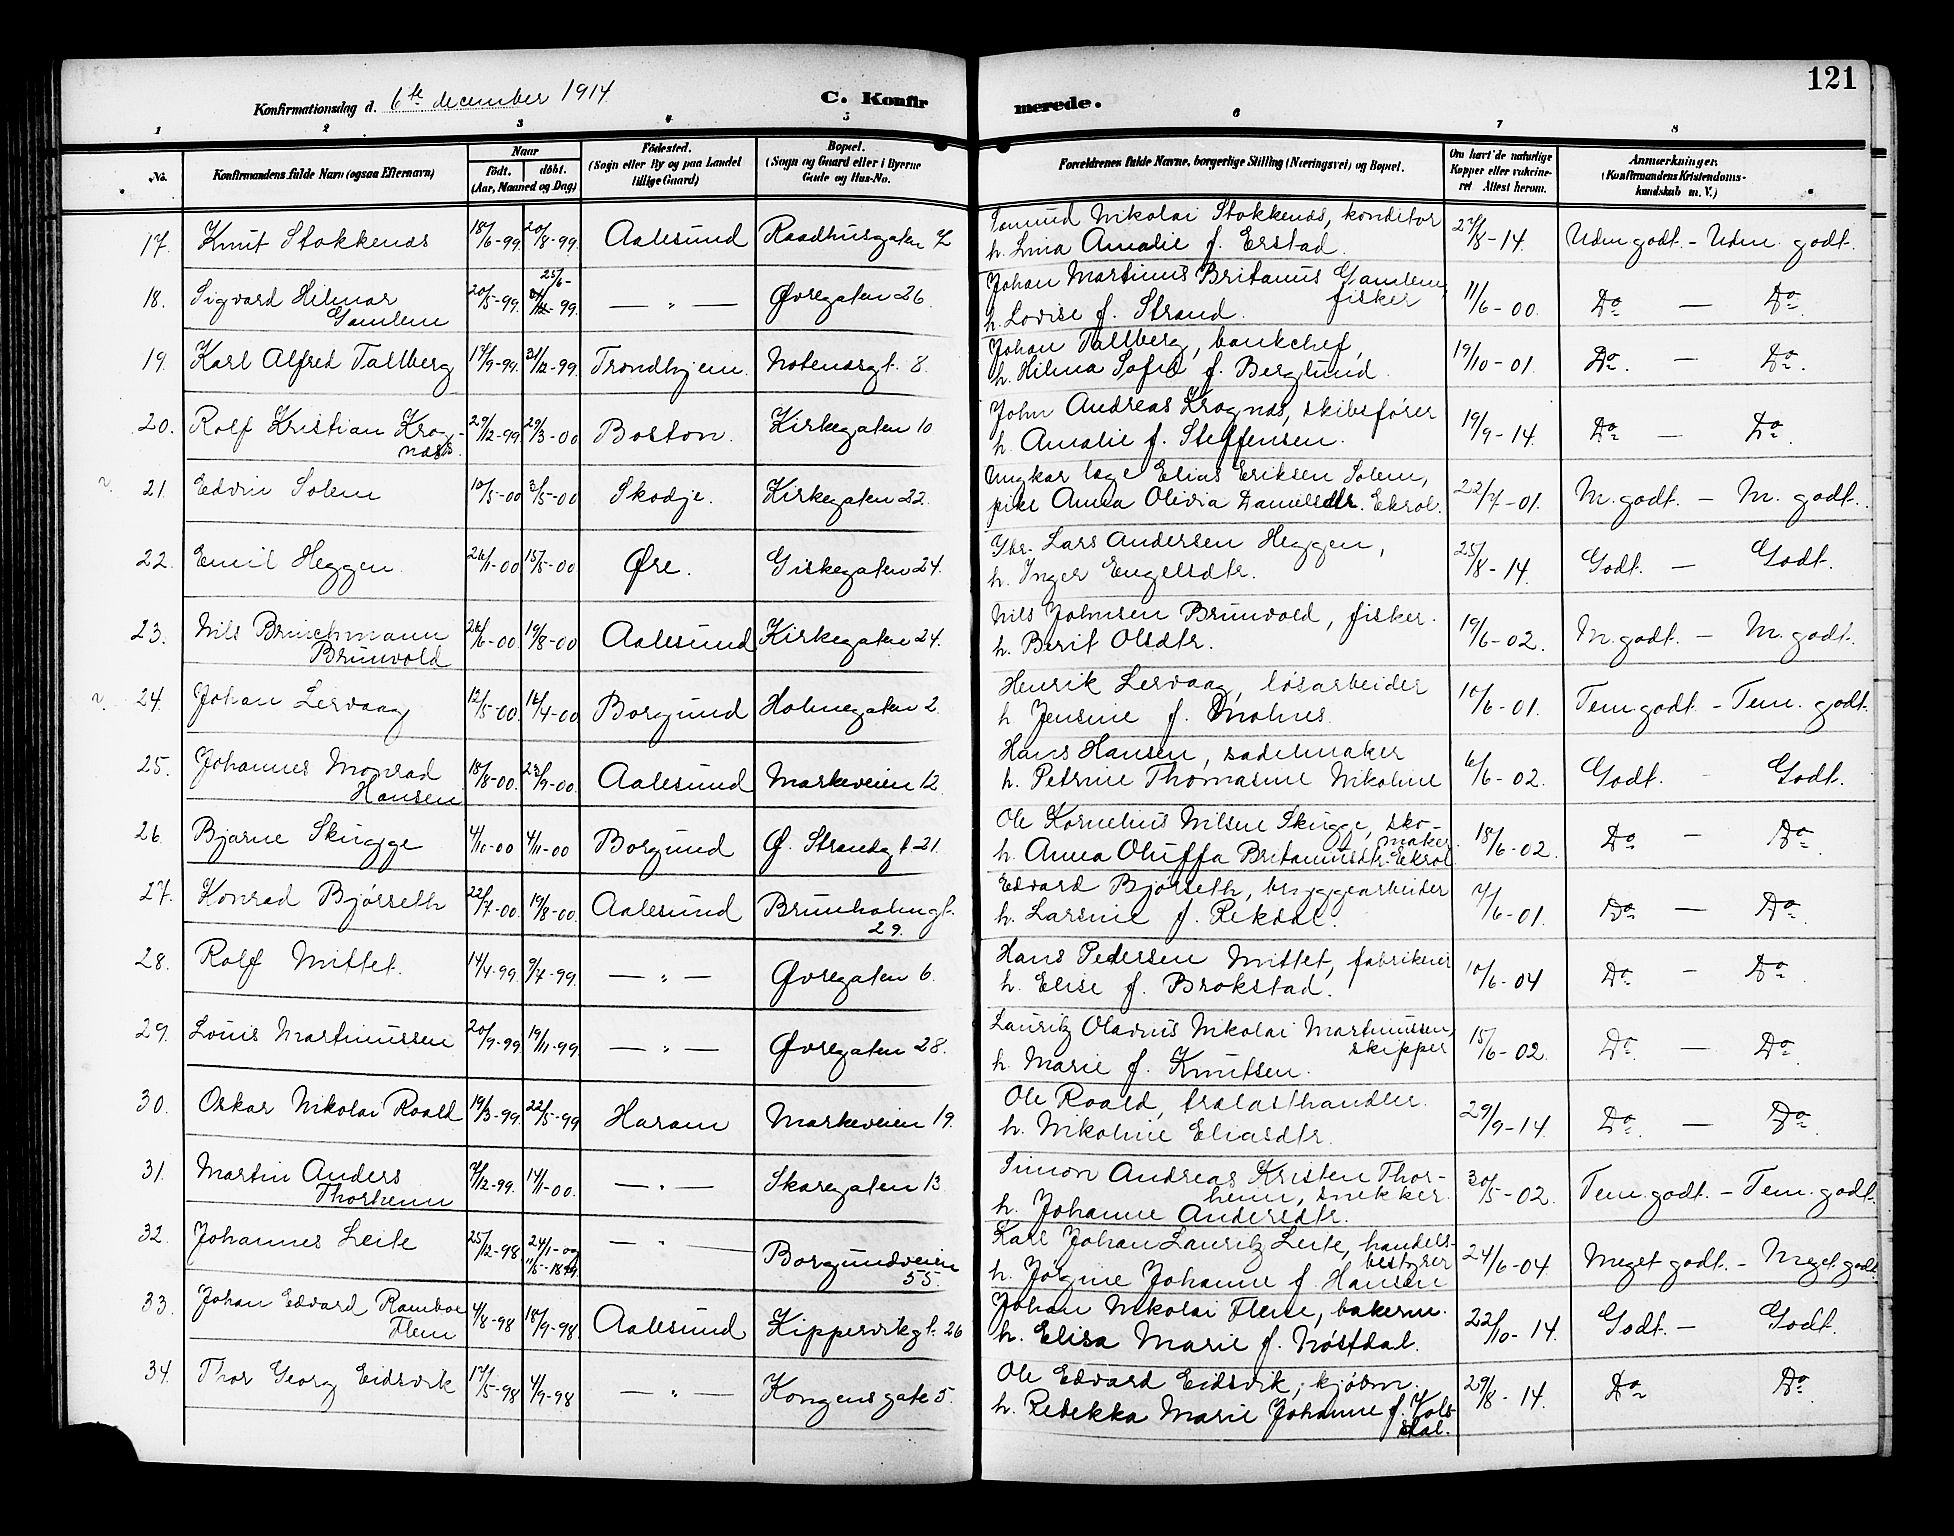 121
Konfirmationsdag d. 6te december 1914 C. Konfirmerede.
1 2 3 4 5 6 7 8
No. Konfirmandens fulde Navn (ogsaa Efternavn) Naar født. døbt. (Aar, Maaned og Dag) Fødested. (Sogn eller By og paa Landet tillige Gaard) Bopæl. (Sogn og Gaard eller i Byerne Gade og Hus-No. Forældrenes fulde Navne, borgerlige Stilling (Næringsvei) og Bopæl. Om havt de naturlige Kopper eller vaccineret Attest herom. Anmærkninger. (Konfirmandens Kristendomskundskab m. V.)
17. Knut Stokkenes 18/6-99 20/8-99 Aalesund Raadhusgaten 2 Samud Nikolai Stokkenes, konditor
h. Lina Amalie f. Erstad. 27/8-14. Udm godt. - Udm. godt.
18. Sigvard Hilmar 20/5-99 25/6- — " — Øvregaten 26. Johan Martinus Britanus Gamlem,
Gamlem -99. fisker
h. Lovise f. Strand. 11/6-00. Do — Do.
19. Karl Alfred Tallberg 17/9-99 31/12-99. Trondhjem. Notenesgt. 8. Johan Tallberg, bankchef,
h. Hilma Sofie f. Berglund. 19/10-01. Do. — Do.
20. Rolf Kristian Krog- 29/12-99 29/3-00 Boston. Kirkegaten 10 John Andreas Krognæs, skibsfører
næs. h. Amalie f. Steffensen. 19/9-14. Do — Do.
21. Edvin Solem 10/5-00 3/5-00 Skodje. Kirkegaten 22. Ungkar lage Elias Eriksen Solem,
pike Anna Olivia Danielsdtr. Ekrol. 22/7-01. M. godt - M. godt.
22. Emil Heggen. 26/1-00 15/5-00 Øre. Giskegaten 24. Gbr. Lars Andersen Heggen,
h. Inger Engelsdtr. 25/8-14. Godt. — Godt.
23. Nils Bruschmann 26/6-00 19/8-00 Aalesund Kirkegaten 24. Nils Johnsen Brunvold, fisker.
Brunvold h. Berit Olsdtr. 19/6-02. M. godt. - M. godt.
24. Johan Lervaag 12/5-00. 16/4-00 Borgund Holmegaten 2. Henrik Lervaag, løsarbeider
h Jensine f. Molnes. 10/6-01. Tem godt. - Tem. godt.
25. Johannes Monrad 18/8-00. 23/9-00. Aalesund Markeveien 12. Hans Hansen, sadelmaker
Hansen h. Petrine Thomasine Nikoline 6/6-02. Godt. - Godt.
26. Bjarne Skugge 4/10-00 4/11-00 Borgund Ø. Strandgt. 21. Ole Kornelius Nilsen Skugge, sko-
maker.
h. Anna Oluffa Britanusdtr. Ekrol 18/6-02. Do — Do
27. Konrad Bjørseth 22/7-00. 19/8-00. Aalesund Brunholmgt. Edvard Bjørseth, bryggearbeider
29. h. Larsine f. Rekdal. 7/6-01. Do — Do.
28. Rolf Mittet. 14/4-99. 9/7-99. — " — Øvregaten 6. Hans Pedersen Mittet, fabrikeier
h. Elise f. Brokstad. 10/6-04 Do — Do.
29. Louis Martinussen 20/9-99. 19/11-99. — " — Øvregaten 28. Lauritz Olavius Nikolai Martinussen,
skipper
h. Marie f. Knutsen. 15/6-02. Do. — Do.
30. Oskar Nikolai Roald 19/3-99. 22/5-99 Haram Markeveien 19. Ole Roald, trælasthandler.
h. Nikoline Eliasdtr. 29/9-14. Do. — Do.
31. Martin Anders 7/12-99. 14/1-00. — " — Skaregaten 13 Simon Andreas Kristen Thor-
Thorheim heim, snekker.
h. Johanne Andersdtr. 30/5-02. Tem. godt. - Tem. godt.
32. Johannes Leite 25/12-98 24/1-00 — " — Borgundveien Karl Johan Lauritz Leite, handels-
11/5-1899 55 bestyrer
h. Jørgine Johanne f. Hansen 24/6-04. Meget godt. - Meget godt.
33. Johan Edvard Ramboe 4/8-98 18/9-98 Aalesund Kippervikgt. 26 Johan Nikolai Flem, bakerm.
Flem h. Elisa Marie f. Nøstdal. 22/10-14. Godt. — Godt.
34. Thor Georg Eidsvik 17/5-98 4/9-98 — " — Kongensgate 5. Ole Edvard Eidsvik, kjøbm.
h. Rebekka Marie Johanne f. Kols-
dal. 29/8-14. Do Do.